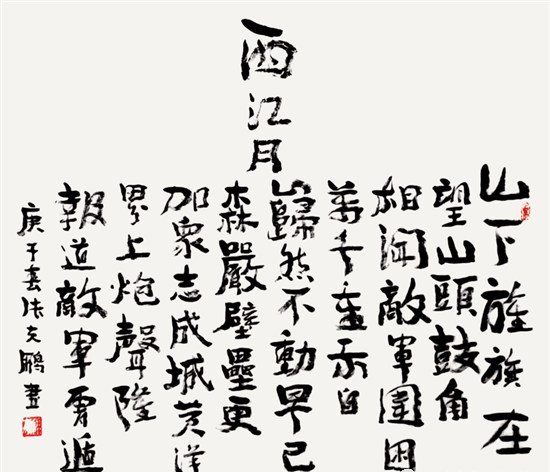 西江月
山下旌旗在
望山頭鼓角
相聞敵軍圍困
萬千重我自
巋然不動早已
森嚴壁壘更
加衆志成城黄洋
界上炮聲隆
報道敵軍宵遁
庚子春张鵬書